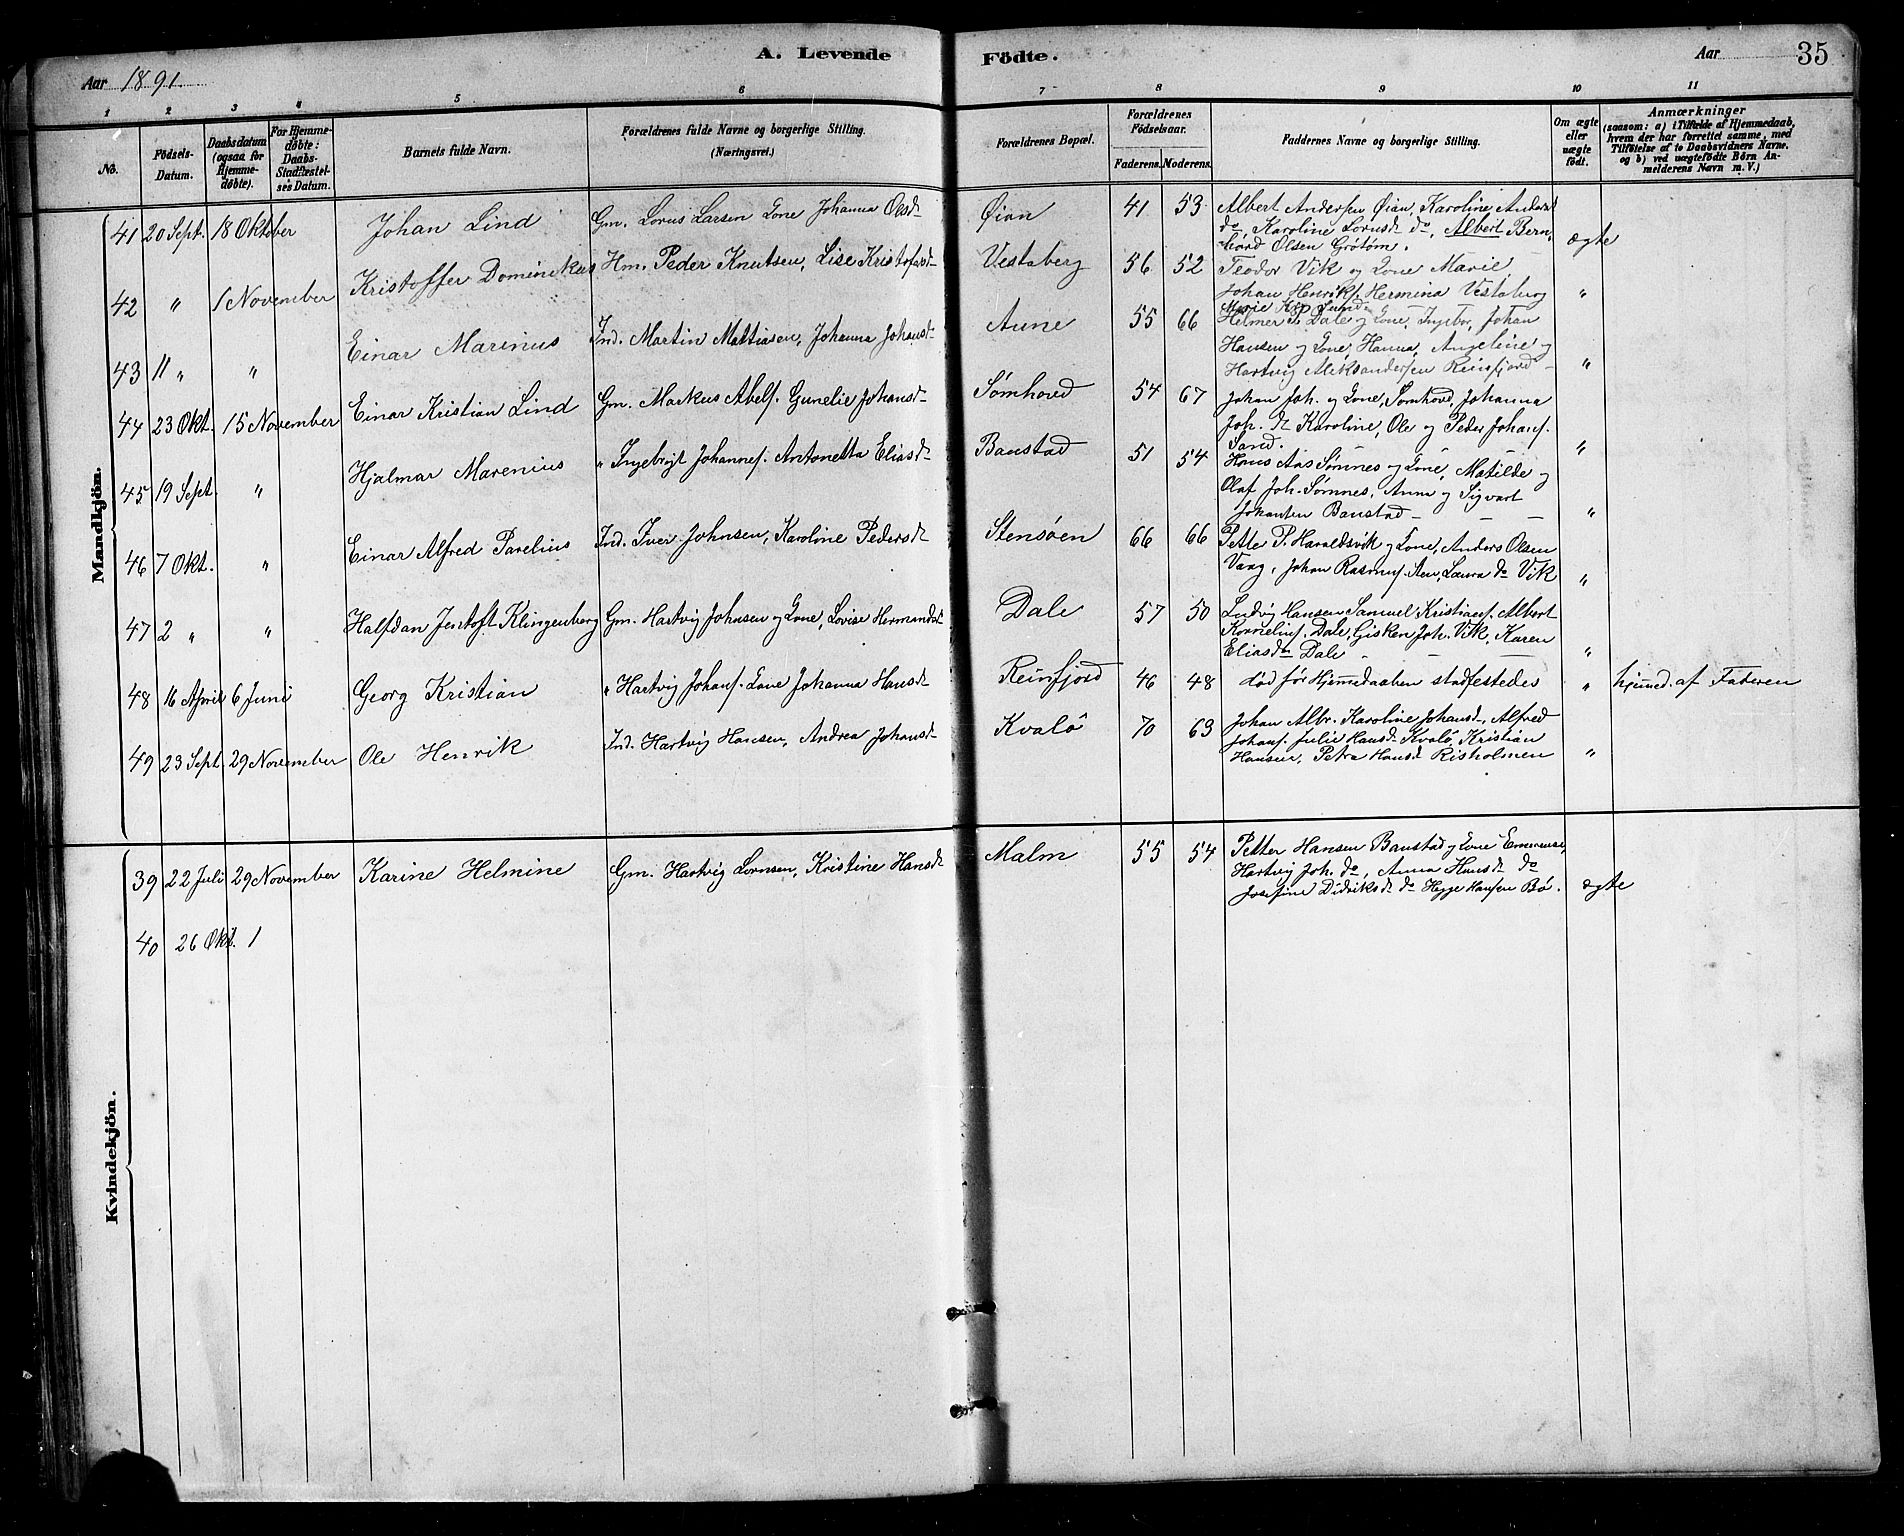 A. Levende Födte.
Aar 1891.
Aar 35
1 2 3 4 5 6 7 8 9 10 11
No.
Födsels-Datum.
Daabsdatum (ogsaa for Hjemmedöbte).
For Hjemmedöbte: Daabs-Stadfæstelses Datum.
Barnets fulde Navn.
Forældrenes fulde Navne og borgerlige Stilling. (Næringsvei.)
Forældrenes Bopæl.
Forældrenes Födselsaar.
Faderens. Moderens.
Faddernes Navne og borgerlige Stilling.
Om ægte eller uægte födt.
Anmærkninger
(saasom: a) i Tilfælde af Hjemmedaab,
hvem der har forrettet samme, med
Tilföielse af to Daabsvidners Navne.
og b) ved uægtefödte Börn An-
melderens Navn m. V.)
Mandkjön.
41 20 Sept. 18 Oktober Johan Lind Gm. Lorns Larsen Kone Johanna Olsd- Øian 41 53 Albert Andersen Øian, Karoline Andersd
do, Karoline Lornsd do, Albert Bern-
hard Olsen Grøtøm. ægte
42 " 1 November Kristoffer Dominekus Hm. Peder Knutsen, Lise Kristofersd- Vestaberg 56 52 Teodor Vik og Kone Marie,
Johan Henriks. Hermina Vestaberg "
43 11 " " Einar Marinus Ind. Martin Mattiasen, Johanna Johansd- Aune 55 66 Helmer P. Dale og Kone, Ingebor, Johan
Hansen og Kone Hanna, Angeline og
Hartvig Aleksandersen Reinsfjord - "
44 23 Okt. 15 November Einar Kristian Lind Gm. Markus Abels. Gunelie Johansd- Sømhovd 54 67 Johan Joh. og Kone, Sømhovd, Johanna
Joh. d Karoline, Ole og Peder Johans.
Sand. "
45 19 Sept. " Hjalmar Marenius " Ingebrigt Johannes. Antonetta Eliasd- Baustad 51 54 Hans Aas Sømnes og Kone, Matilde og
Olaf Joh. Sømnes, Anna og Sigvart
Johansen Baustad - "
46 7 Okt. " Einar Alfred Parelius Ind. Iver Johnsen, Karoline Pedersd- Stensøen 66 66 Petter P. Haraldsvik og Kone, Anders Olsen
Vaag, Johan Rasmus. Aun, Laura do Vik "
47 2 " " Halfdan Jentoft Klingenberg Gm. Hartvig Johnsen og Kone, Lovise Hermandsd- Dale 57 50 Ludvig Hansen Samuel Kristians. Albert
Kornelius. Dale, Gisken Joh. Vik, Karen
Eliasd Dale - "
48 16 April 6 Juni Georg Kristian " Hartvig Johans. Kone Johanna Hansd- Reinsfjord 46 48 død før Hjemmedaaben stadfestedes " hjemmed. af Faderen
49 23 Sept 29 November Ole Henrik Ind. Hartvig Hansen, Andrea Johansd- Kvalø 70 63 Johan Albr. Karoline Johansd-, Alfred
Johans. Julie Hansd- Kvalø, Kristian
Hansen, Petra Hansd Risholmen "
Kvindekjön.
39 22 Juli 29 November Karine Helmine Gm. Hartvig Lornsen, Kristine Hansd- Malm 55 54 Petter Hansen Baustad og Kone Emerense,
Hartvig Joh. do, Anna Hansd do
Josefine Didriksd do Hegge Hansen Bø. ægte
40 26 Okt. 1